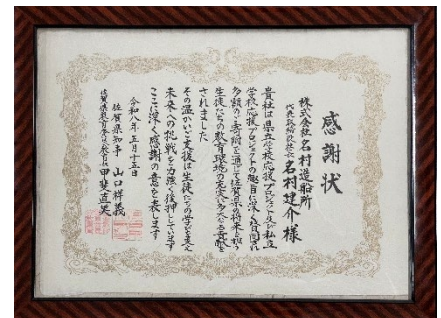 感謝状
株式会社名村造船所
代表取締役社長 名村建介 様
貴社は県立学校応援プロジェクト及び私立
学校応援プロジェクトの趣旨に深く賛同され
多額のご寄附を通じて佐賀県の将来を担う
生徒たちの教育環境の充実に多大な貢献を
されました
その温かいご支援は生徒たちの学びを支え
未来への挑戦を力強く後押ししています
ここに深く感謝の意を表します
令和八年五月十五日
佐賀県知事 山口祥義
佐賀県教育委員会教育長 甲斐直美